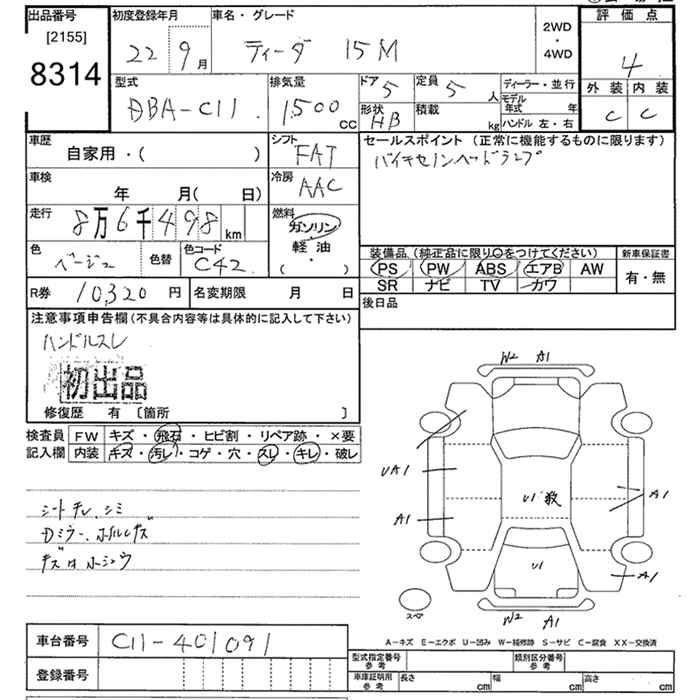 出品番号
[2155]
8314
初度登録年月
22 9月
車名・グレード
ティーダ 15M
2WD
・
4WD
評価点
4
外装 内装
C C
型式
DBA-C11
排気量
1500 CC
ドア 5
形状 HB
定員 5 人
積載 kg
ディーラー・並行
モデル年式 年
ハンドル 左・右
車歴
自家用・( )
シフト
FAT
車検
年 月( 日)
冷房
AAC
走行
8万6千498 km
燃料
ガソリン
軽油
( ・ )
色
ベージュ
色替
色コード
C42
R券 10,320 円
名変期限 月 日
セールスポイント(正常に機能するものに限ります)
バイキセノンヘッドランプ
装備品(純正品に限り○をつけてください)
PS PW ABS エアB AW
SR ナビ TV カワ
新車保証書
有・無
後日品
注意事項申告欄(不具合内容等は具体的に記入して下さい)
ハンドルスレ
初出品
修復歴 有 〔箇所 〕
検査員記入欄
FW キズ・飛石・ヒビ割・リペア跡・×要
内装 キズ・汚レ・コゲ・穴・スレ・キレ・破レ
シートキレ、シミ
Dミラー、ホイルキズ
キズ小ホシュウ
W2 A1
UA1
A1
U1 殺
A1
U1
A1
W2 A1
スペア
A-キズ E-エクボ U-凹み W-補修跡 S-サビ C-腐食 XX-交換済
車台番号 C11-401091
登録番号
型式指定番号 参考
類別区分番号 参考
車庫証明用 参考
長さ cm
幅 cm
高さ cm